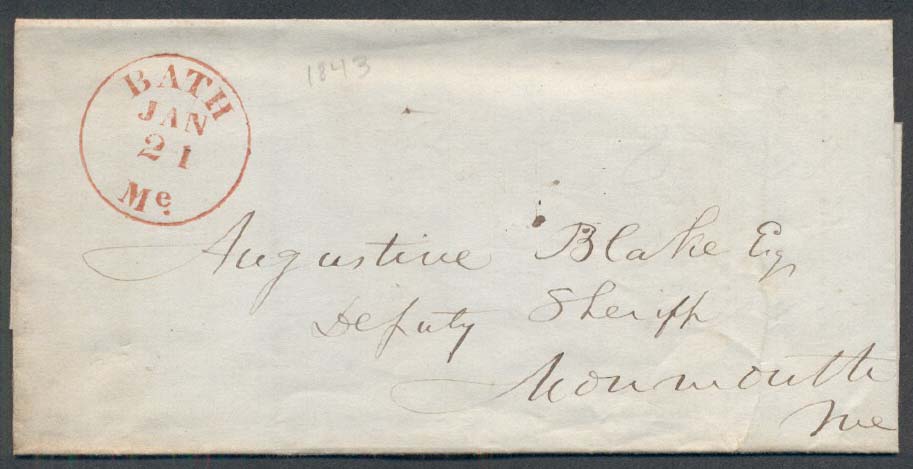 BATH
JAN
21
Me.
1843
Augustine Blake Esq
Deputy Sheriff
Monmouth
Me